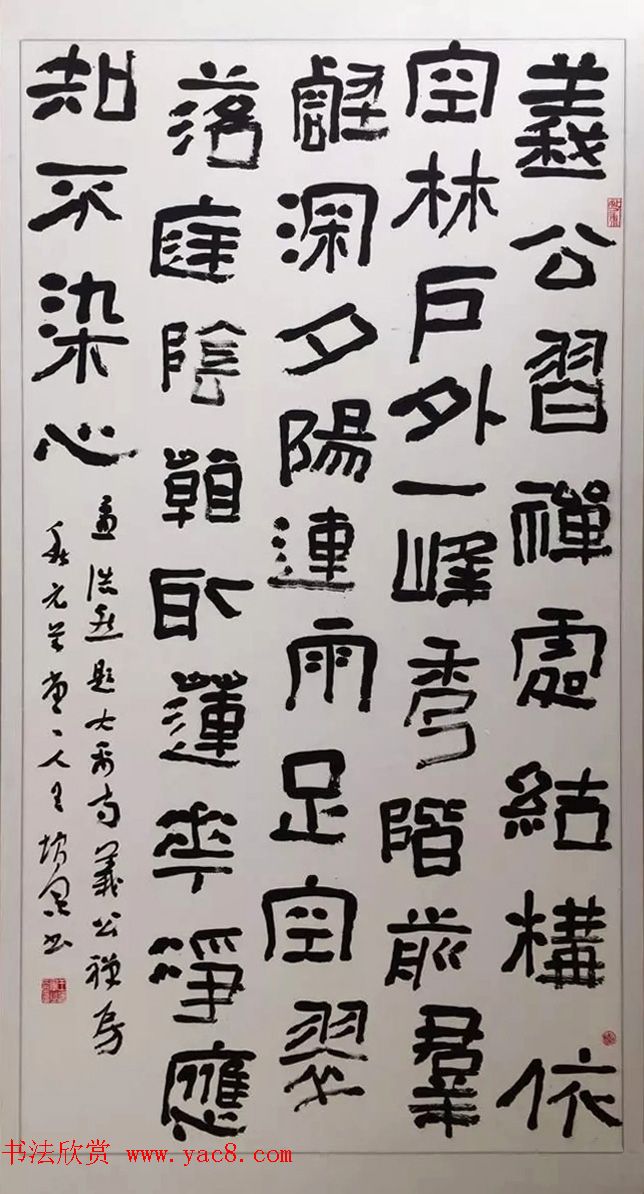 義公習禪處結構依
空林戶外一峰秀階前羣
壑深夕陽連雨足空翠
落庭陰看取蓮華淨應
知不染心
孟浩然題大禹寺義公禪房
书法欣赏 www.yac8.com